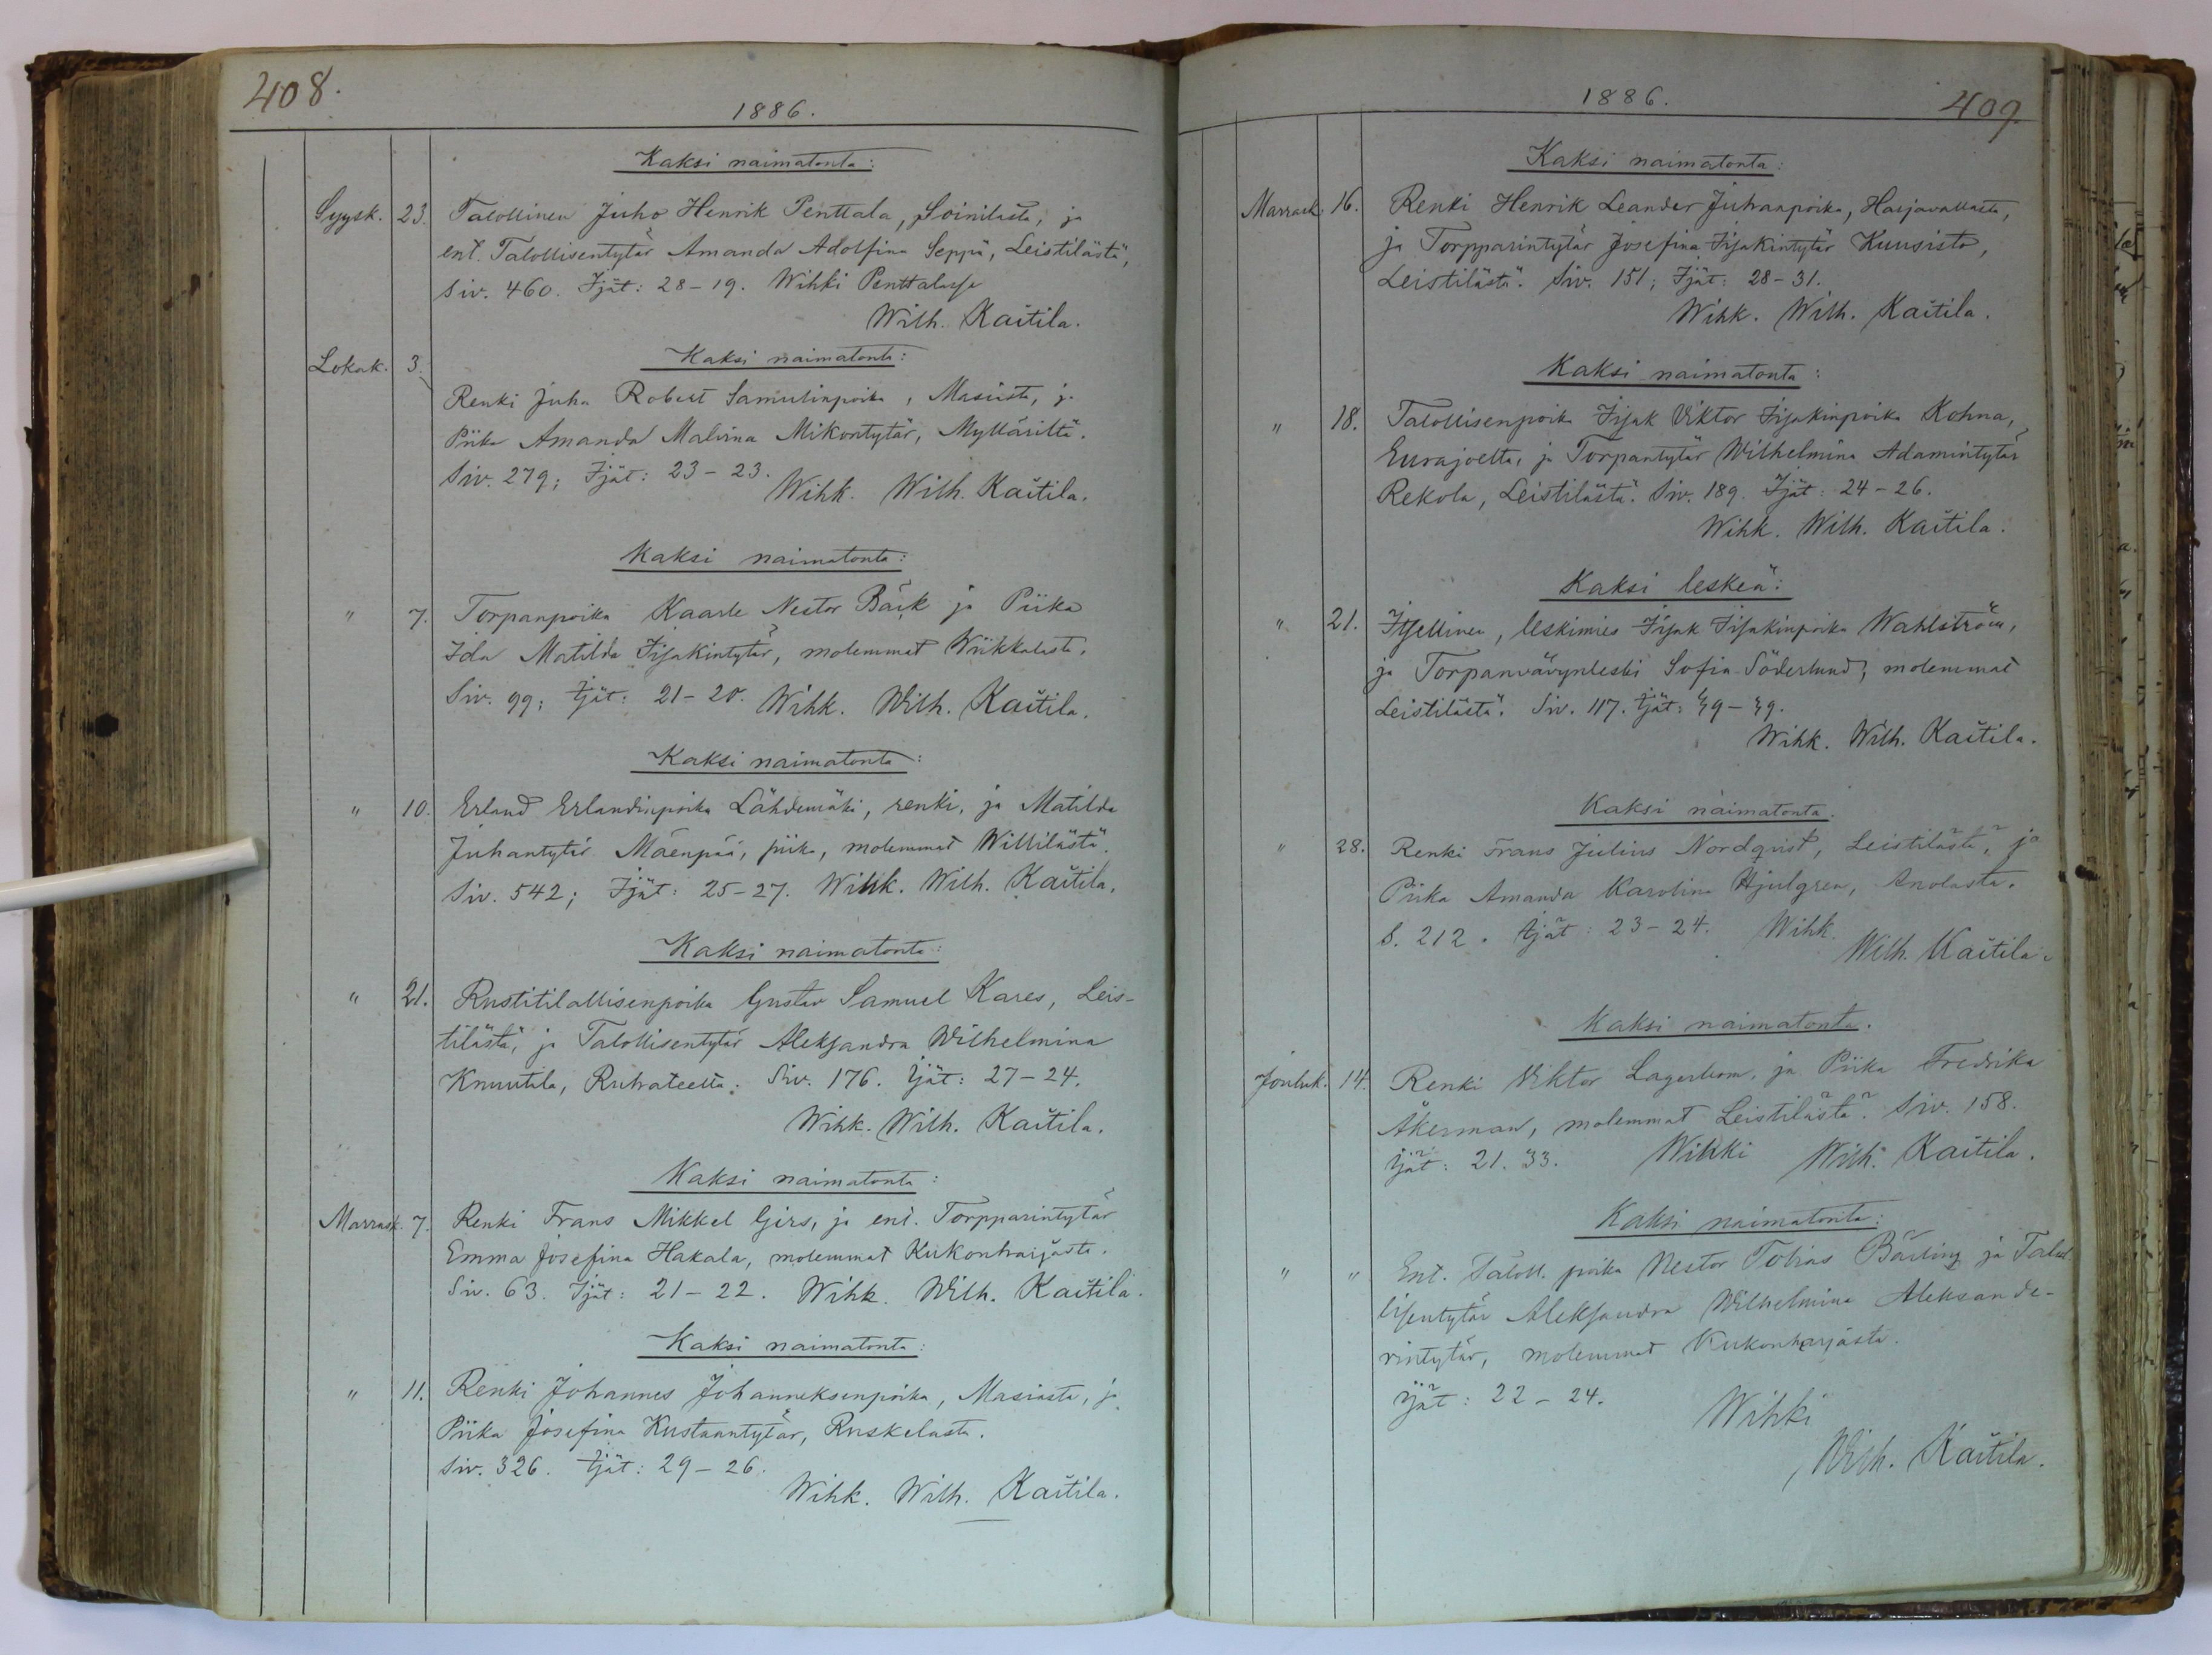 408.
1886.
Kaksi naimatonta:
Syysk. 23. Talollinen Juho Henrik Penttala, Soinilasta, ja
ent. Talollisentytär Amanda Adolfina Seppä, Leistilästä,
Siv. 460. Ijät: 28-19. Wihki Penttalassa
Wilh. Kaitila.
Kaksi naimatonta:
Lokak. 3. Renki Juha Robert Samulinpoika, Masiista, ja
Piika Amanda Malvina Mikontytär, Mylläriltä.
Siv. 279; Ijät: 23-23. Wihk. Wilh. Kaitila.
Kaksi naimatonta:
" 7. Torpanpoika Kaarle Nestor Bäck ja Piika
Ida Matilda Iisakintytär, molemmat Wiikkalasta.
Siv. 99; Ijät: 21-20. Wihk. Wilh. Kaitila.
Kaksi naimatonta:
" 10. Erland Erlandinpoika Lähdemäki, renki, ja Matilda
Juhantytär Mäenpää, piika, molemmat Willilästä.
Siv. 542; Ijät: 25-27. Wihk. Wilh. Kaitila.
Kaksi naimatonta:
" 21. Rustitilallisenpoika Gustav Samuel Kares, Leis-
tilästä, ja Talollisentytär Aleksandra Wilhelmina
Knuutila, Ruhateelta. Siv. 176. Ijät: 27-24.
Wihk. Wilh. Kaitila.
Kaksi naimatonta:
Marrask. 7. Renki Frans Mikkel Girs, ja ent. Torpparintytär
Emma Josefina Hakala, molemmat Kukonharjasta.
Siv. 63. Ijät: 21-22. Wihk. Wilh. Kaitila.
Kaksi naimatonta:
" 11. Renki Johannes Johanneksenpoika, Masiasta, ja
Piika Josefina Kustaantytär, Ruskelasta.
Siv. 326. Ijät: 29-26.
Wihk. Wilh. Kaitila.
1886.
409.
Kaksi naimatonta:
Marrask. 16. Renki Henrik Leander Juhanpoika, Harjavallasta,
ja Torpparintytär Josefina Iisakintytär Kuusisto,
Leistilästä. Siv. 151; Ijät: 28-31.
Wihk. Wilh. Kaitila.
Kaksi naimatonta:
" 18. Talollisenpoika Iisak Viktor Iisakinpoika Kohna,
Eurajoelta, ja Torpantytär Wilhelmina Adamintytär
Rekola, Leistilästä. Siv. 189. Ijät: 24-26.
Wihk. Wilh. Kaitila.
Kaksi leskeä:
" 21. Itsellinen, leskimies Iisak Iisakinpoika Wahlström,
ja Torpanvävynleski Sofia Söderlund, molemmat
Leistilästä. Siv. 117. Ijät: 49-49.
Wihk. Wilh. Kaitila.
Kaksi naimatonta.
" 28. Renki Frans Julius Nordqvist, Leistilästä, ja
Piika Amanda Karolina Hjulgren, Anolasta.
S. 212. Ijät: 23-24. Wihk.
Wilh. Kaitila.
Kaksi naimatonta.
Jouluk. 14. Renki Viktor Lagerbom, ja Piika Fredrika
Åkerman, molemmat Leistilästä. Siv. 158.
Ijät: 21. 33. Wihki Wilh. Kaitila.
Kaksi naimatonta:
" " Ent. Taloll. poika Nestor Tobias Bärling ja Talol
lisentytär Aleksandra Wilhelmina Aleksande-
rintytär, molemmat Kukonharjasta.
Ijät: 22-24.
Wihki
Wilh. Kaitila.